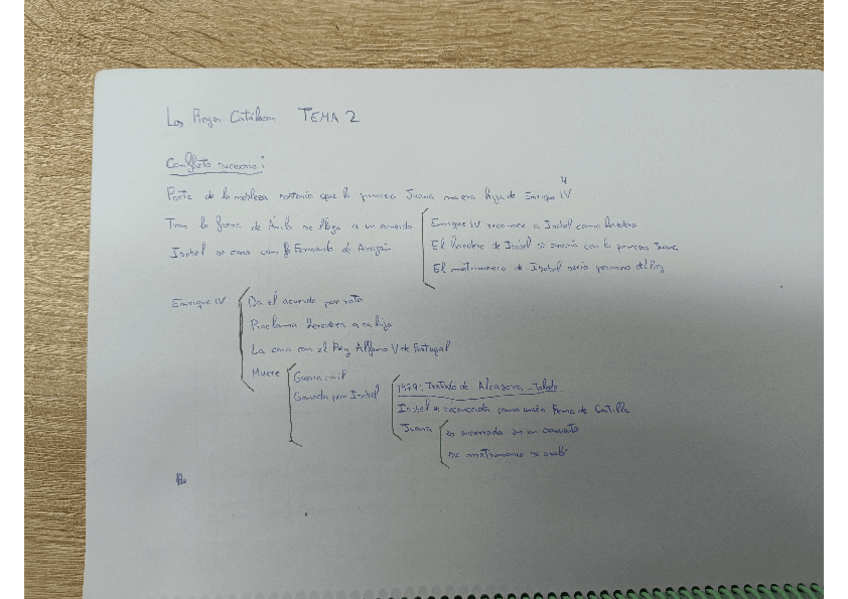 Los Reyes Católicos TEMA 2
Conflicto sucesorio:
Parte de la nobleza sostenía que la princesa Juana no era hija de Enrique IV
Tras la farsa de Ávila se llega a un acuerdo
Isabel se casa con Fernando de Aragón
Enrique IV reconoce a Isabel como heredera
El hombre de Isabel se casaría con la princesa Juana
El matrimonio de Isabel sería permiso del Rey
Enrique IV
Da el acuerdo por roto
Proclama heredera a su hija
La casa con el Rey Alfonso V de Portugal
Muere
Guerra civil
Ganada por Isabel
1479: Tratado de Alcaçova - Toledo
Isabel es reconocida como única Reina de Castilla
Juana
es encerrada en un convento
su matrimonio se anuló